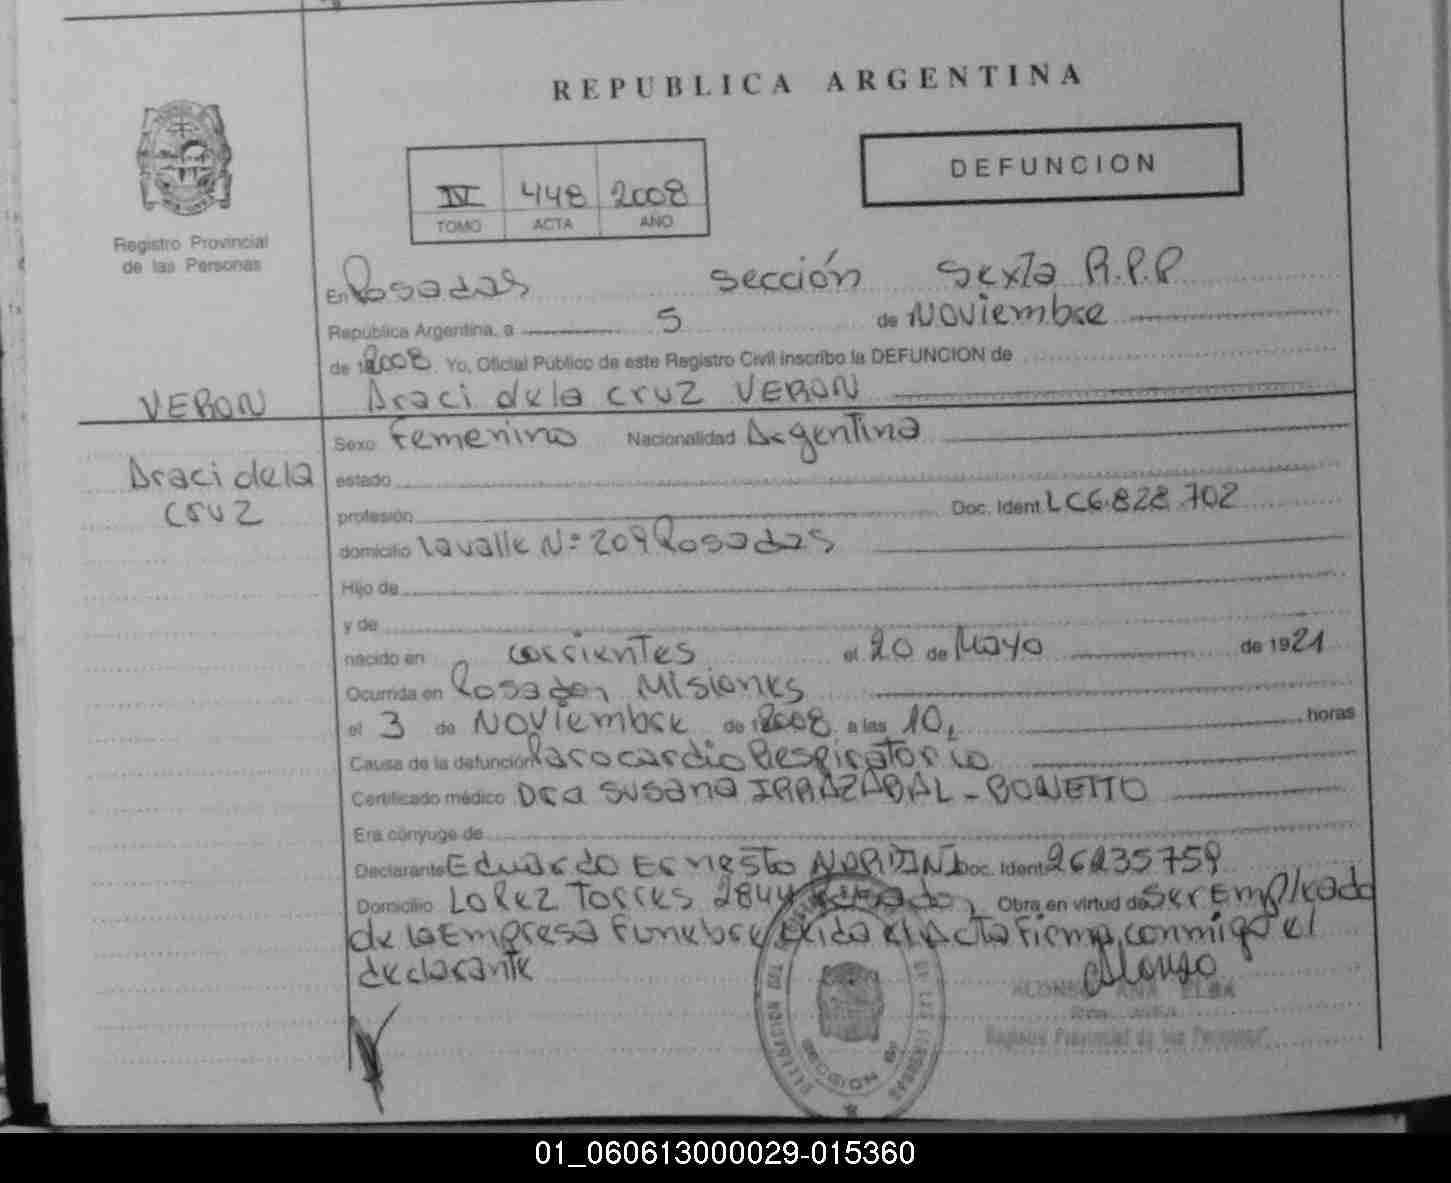 REPUBLICA ARGENTINA
DEFUNCION
IV 448 2008
TOMO ACTA AÑO
Registro Provincial
de las Personas
En Posadas sección sexta R.P.P
República Argentina, a 5 de Noviembre
de 2008 Yo, Oficial Público de este Registro Civil inscribo la DEFUNCION de
VERON
Araci de la cruz VERON
Araci de la
cruz
Sexo Femenino Nacionalidad Argentina
estado
profesión Doc. Ident. LC6.828.702
domicilio Lavalle Nº 209 Posadas
Hijo de
y de
nacido en corrientes el 20 de Mayo de 1921
Ocurrida en Posadas, Misiones
el 3 de Noviembre de 2008 a las 10, horas
Causa de la defunción Paro cardio Respiratorio
Certificado médico Dra susana IRRAZABAL - BONETTO
Era cónyuge de
Declarante Eduardo Ernesto NARDINI Doc. Ident. 26235759
Domicilio Lopez Torres 2844 Obra en virtud de ser Empleado
de la Empresa Funebre Leida el Acta Firma conmigo el
declarante
Alonso
ALONSO ANA ELBA
Registro Provincial de las Personas
01_060613000029-015360